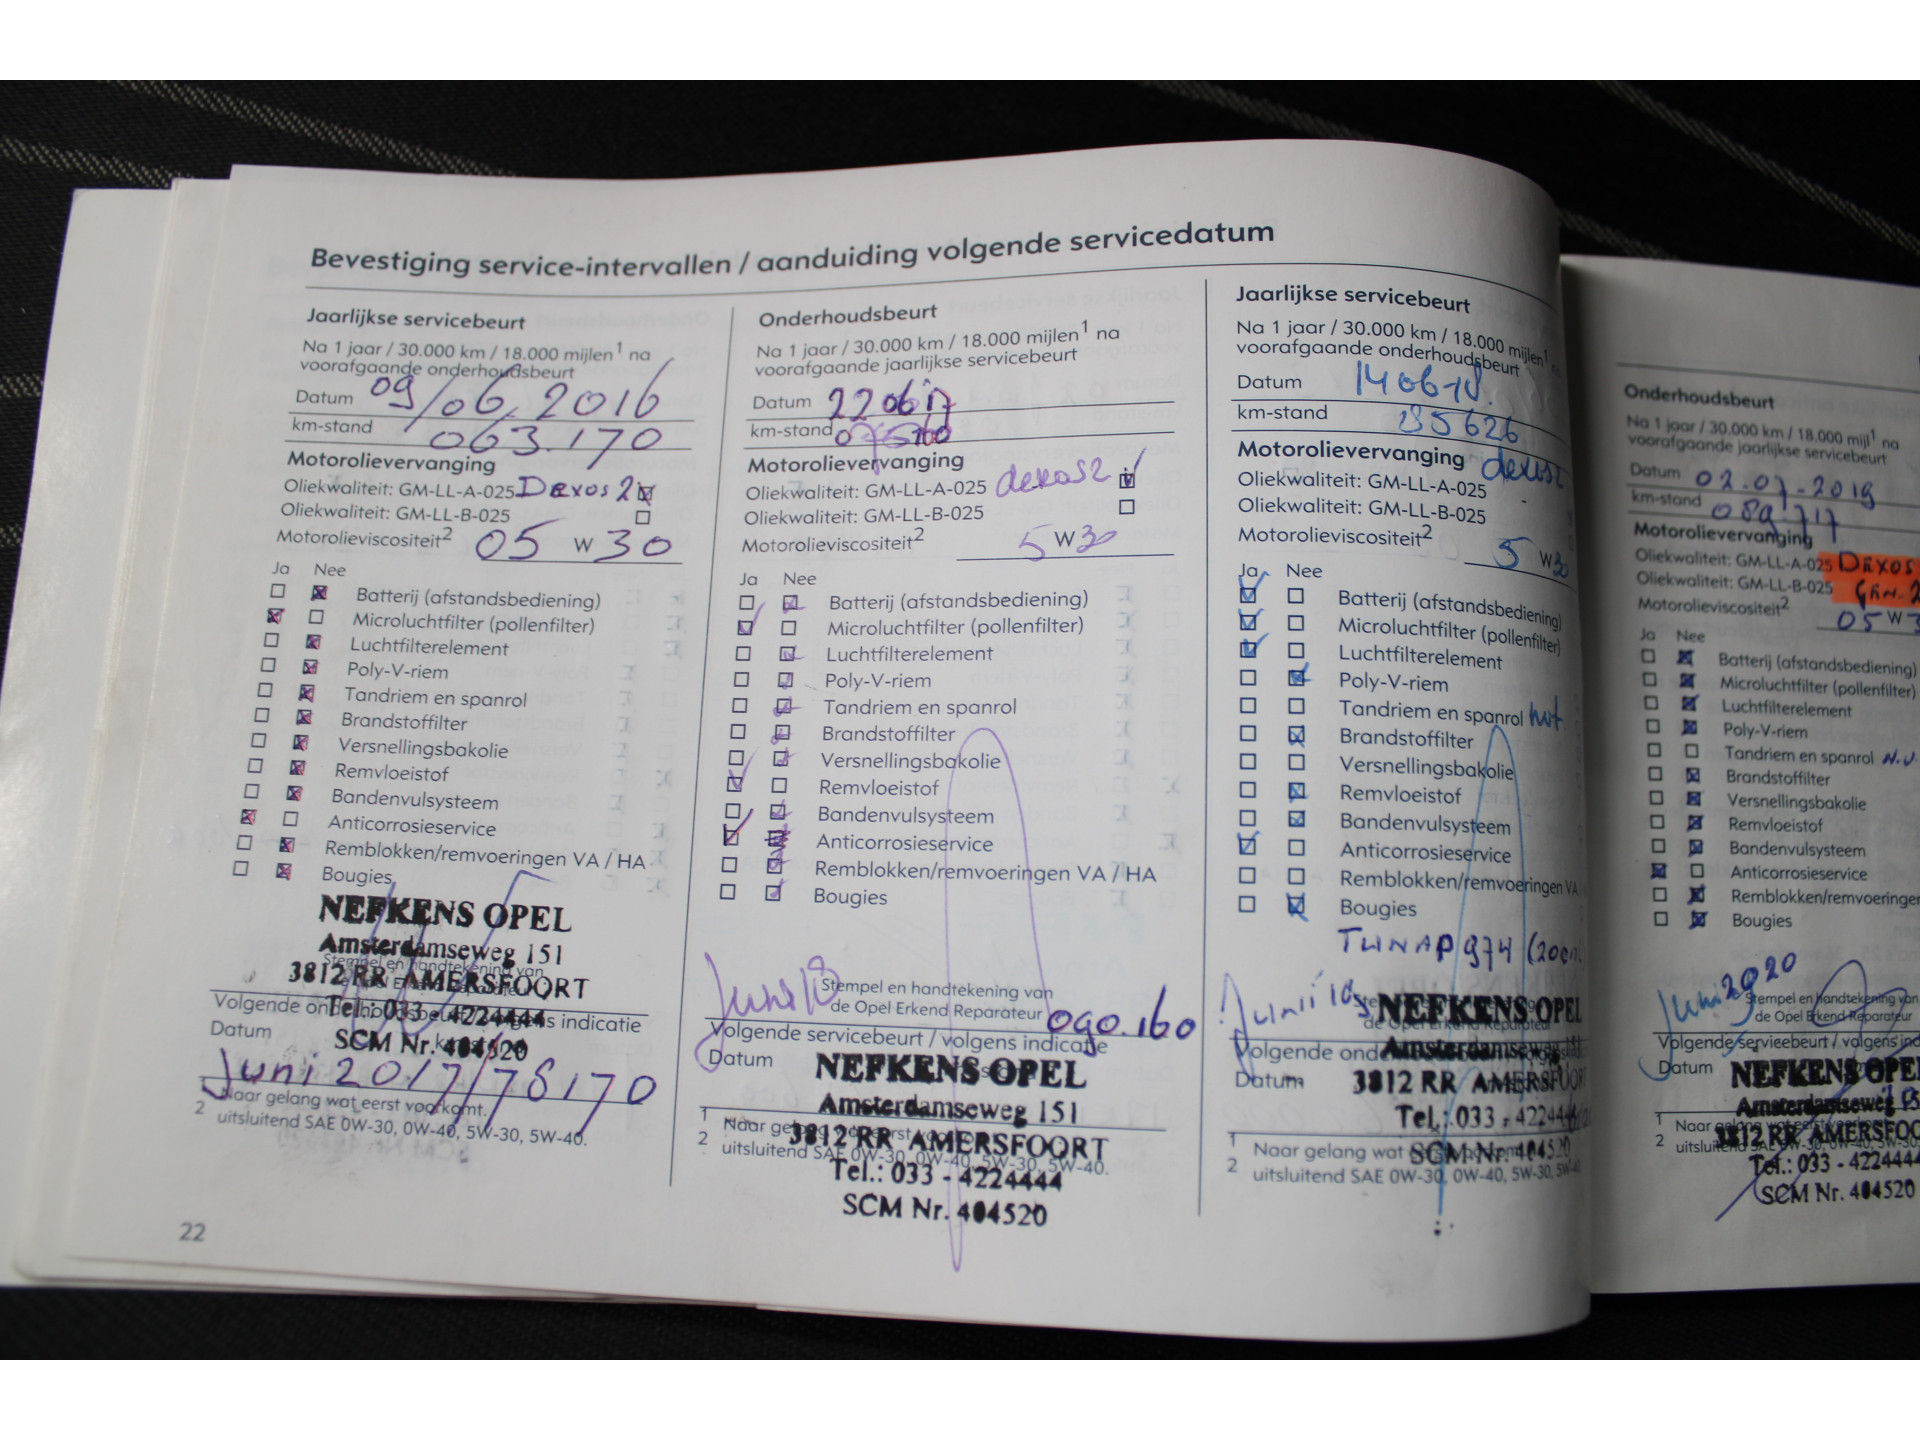 Bevestiging service-intervallen / aanduiding volgende servicedatum
Jaarlijkse servicebeurt
Na 1 jaar / 30.000 km / 18.000 mijlen¹ na
voorafgaande onderhoudsbeurt
Datum 09/06.2016
km-stand 063.170
Motorolievervanging
Oliekwaliteit: GM-LL-A-025 Dexos 2
Oliekwaliteit: GM-LL-B-025
Motorolieviscositeit² 05 W 30
Ja Nee
Batterij (afstandsbediening)
Microluchtfilter (pollenfilter)
Luchtfilterelement
Poly-V-riem
Tandriem en spanrol
Brandstoffilter
Versnellingsbakolie
Remvloeistof
Bandenvulsysteem
Anticorrosieservice
Remblokken/remvoeringen VA / HA
Bougies
NEFKENS OPEL
Amsterdamseweg 151
Stempel en handtekening van
3812 RR AMERSFOORT
Tel.: 033 - 4224444
Volgende onderhoudsbeurt / volgens indicatie
Datum
SCM Nr. 404520
Juni 2017/78170
Naar gelang wat eerst voorkomt.
2 uitsluitend SAE 0W-30, 0W-40, 5W-30, 5W-40.
22
Onderhoudsbeurt
Na 1 jaar / 30.000 km / 18.000 mijlen¹ na
voorafgaande jaarlijkse servicebeurt
Datum 22 06 17
km-stand
Motorolievervanging
Oliekwaliteit: GM-LL-A-025 dexos2
Oliekwaliteit: GM-LL-B-025
Motorolieviscositeit² 5 W 30
Ja Nee
Batterij (afstandsbediening)
Microluchtfilter (pollenfilter)
Luchtfilterelement
Poly-V-riem
Tandriem en spanrol
Brandstoffilter
Versnellingsbakolie
Remvloeistof
Bandenvulsysteem
Anticorrosieservice
Remblokken/remvoeringen VA / HA
Bougies
Juni 18
Stempel en handtekening van
de Opel Erkend Reparateur 090.160
Volgende servicebeurt / volgens indicatie
Datum
NEFKENS OPEL
Amsterdamseweg 151
1 Naar gelang wat eerst
3812 RR AMERSFOORT
2 uitsluitend SAE 0W-30, 0W-40, 5W-30, 5W-40.
Tel.: 033 - 4224444
SCM Nr. 404520
Jaarlijkse servicebeurt
Na 1 jaar / 30.000 km / 18.000 mijlen¹
voorafgaande onderhoudsbeurt
Datum 14 06-18.
km-stand 85626
Motorolievervanging dexos2
Oliekwaliteit: GM-LL-A-025
Oliekwaliteit: GM-LL-B-025
Motorolieviscositeit² 5 W 30
Ja Nee
Batterij (afstandsbediening)
Microluchtfilter (pollenfilter)
Luchtfilterelement
Poly-V-riem
Tandriem en spanrol
Brandstoffilter
Versnellingsbakolie
Remvloeistof
Bandenvulsysteem
Anticorrosieservice
Remblokken/remvoeringen VA
Bougies
TUNAP 974
NEFKENS OPEL
de Opel Erkend Reparateur
Amsterdamseweg
Datum
3812 RR AMERSFOORT
Tel.: 033 - 42244
1 Naar gelang wat
SCM Nr. 404520
2 uitsluitend SAE 0W-30, 0W-40, 5W-30, 5W-40
Onderhoudsbeurt
Na 1 jaar / 30.000 km / 18.000 mijl¹ na
voorafgaande jaarlijkse servicebeurt
Datum 02.07-2019
km-stand 089.717
Motorolievervanging
Oliekwaliteit: GM-LL-A-025 Dexos
Oliekwaliteit: GM-LL-B-025 Gen. 2
Motorolieviscositeit² 05 W 3
Ja Nee
Batterij (afstandsbediening)
Microluchtfilter (pollenfilter)
Luchtfilterelement
Poly-V-riem
Tandriem en spanrol
Brandstoffilter
Versnellingsbakolie
Remvloeistof
Bandenvulsysteem
Anticorrosieservice
Remblokken/remvoeringen
Bougies
Juni 2020
Stempel en handtekening van
de Opel Erkend Reparateur
Volgende servicebeurt / volgens
Datum
NEFKENS OPEL
Amsterdamseweg
1 Naar gelang wat eerst
3812 RR AMERSFOO
2 uitsluitend SAE 0W-30, 0W-40, 5W-30
Tel.: 033 - 4224444
SCM Nr. 404520